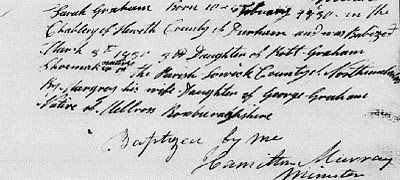 Sarah Graham Born 10 February 1830 in the
Chaplery of Heworth County of Durham and was Babtized
March 8th 1831 3rd Daughter of Robt Graham
Shoemaker native of The Parish Lowick County of Northumberland
By Margrey his wife Daughter of George Graham
Native of Hellross Roxburghshire
Baptized by me
Hamilton Murray
Minister